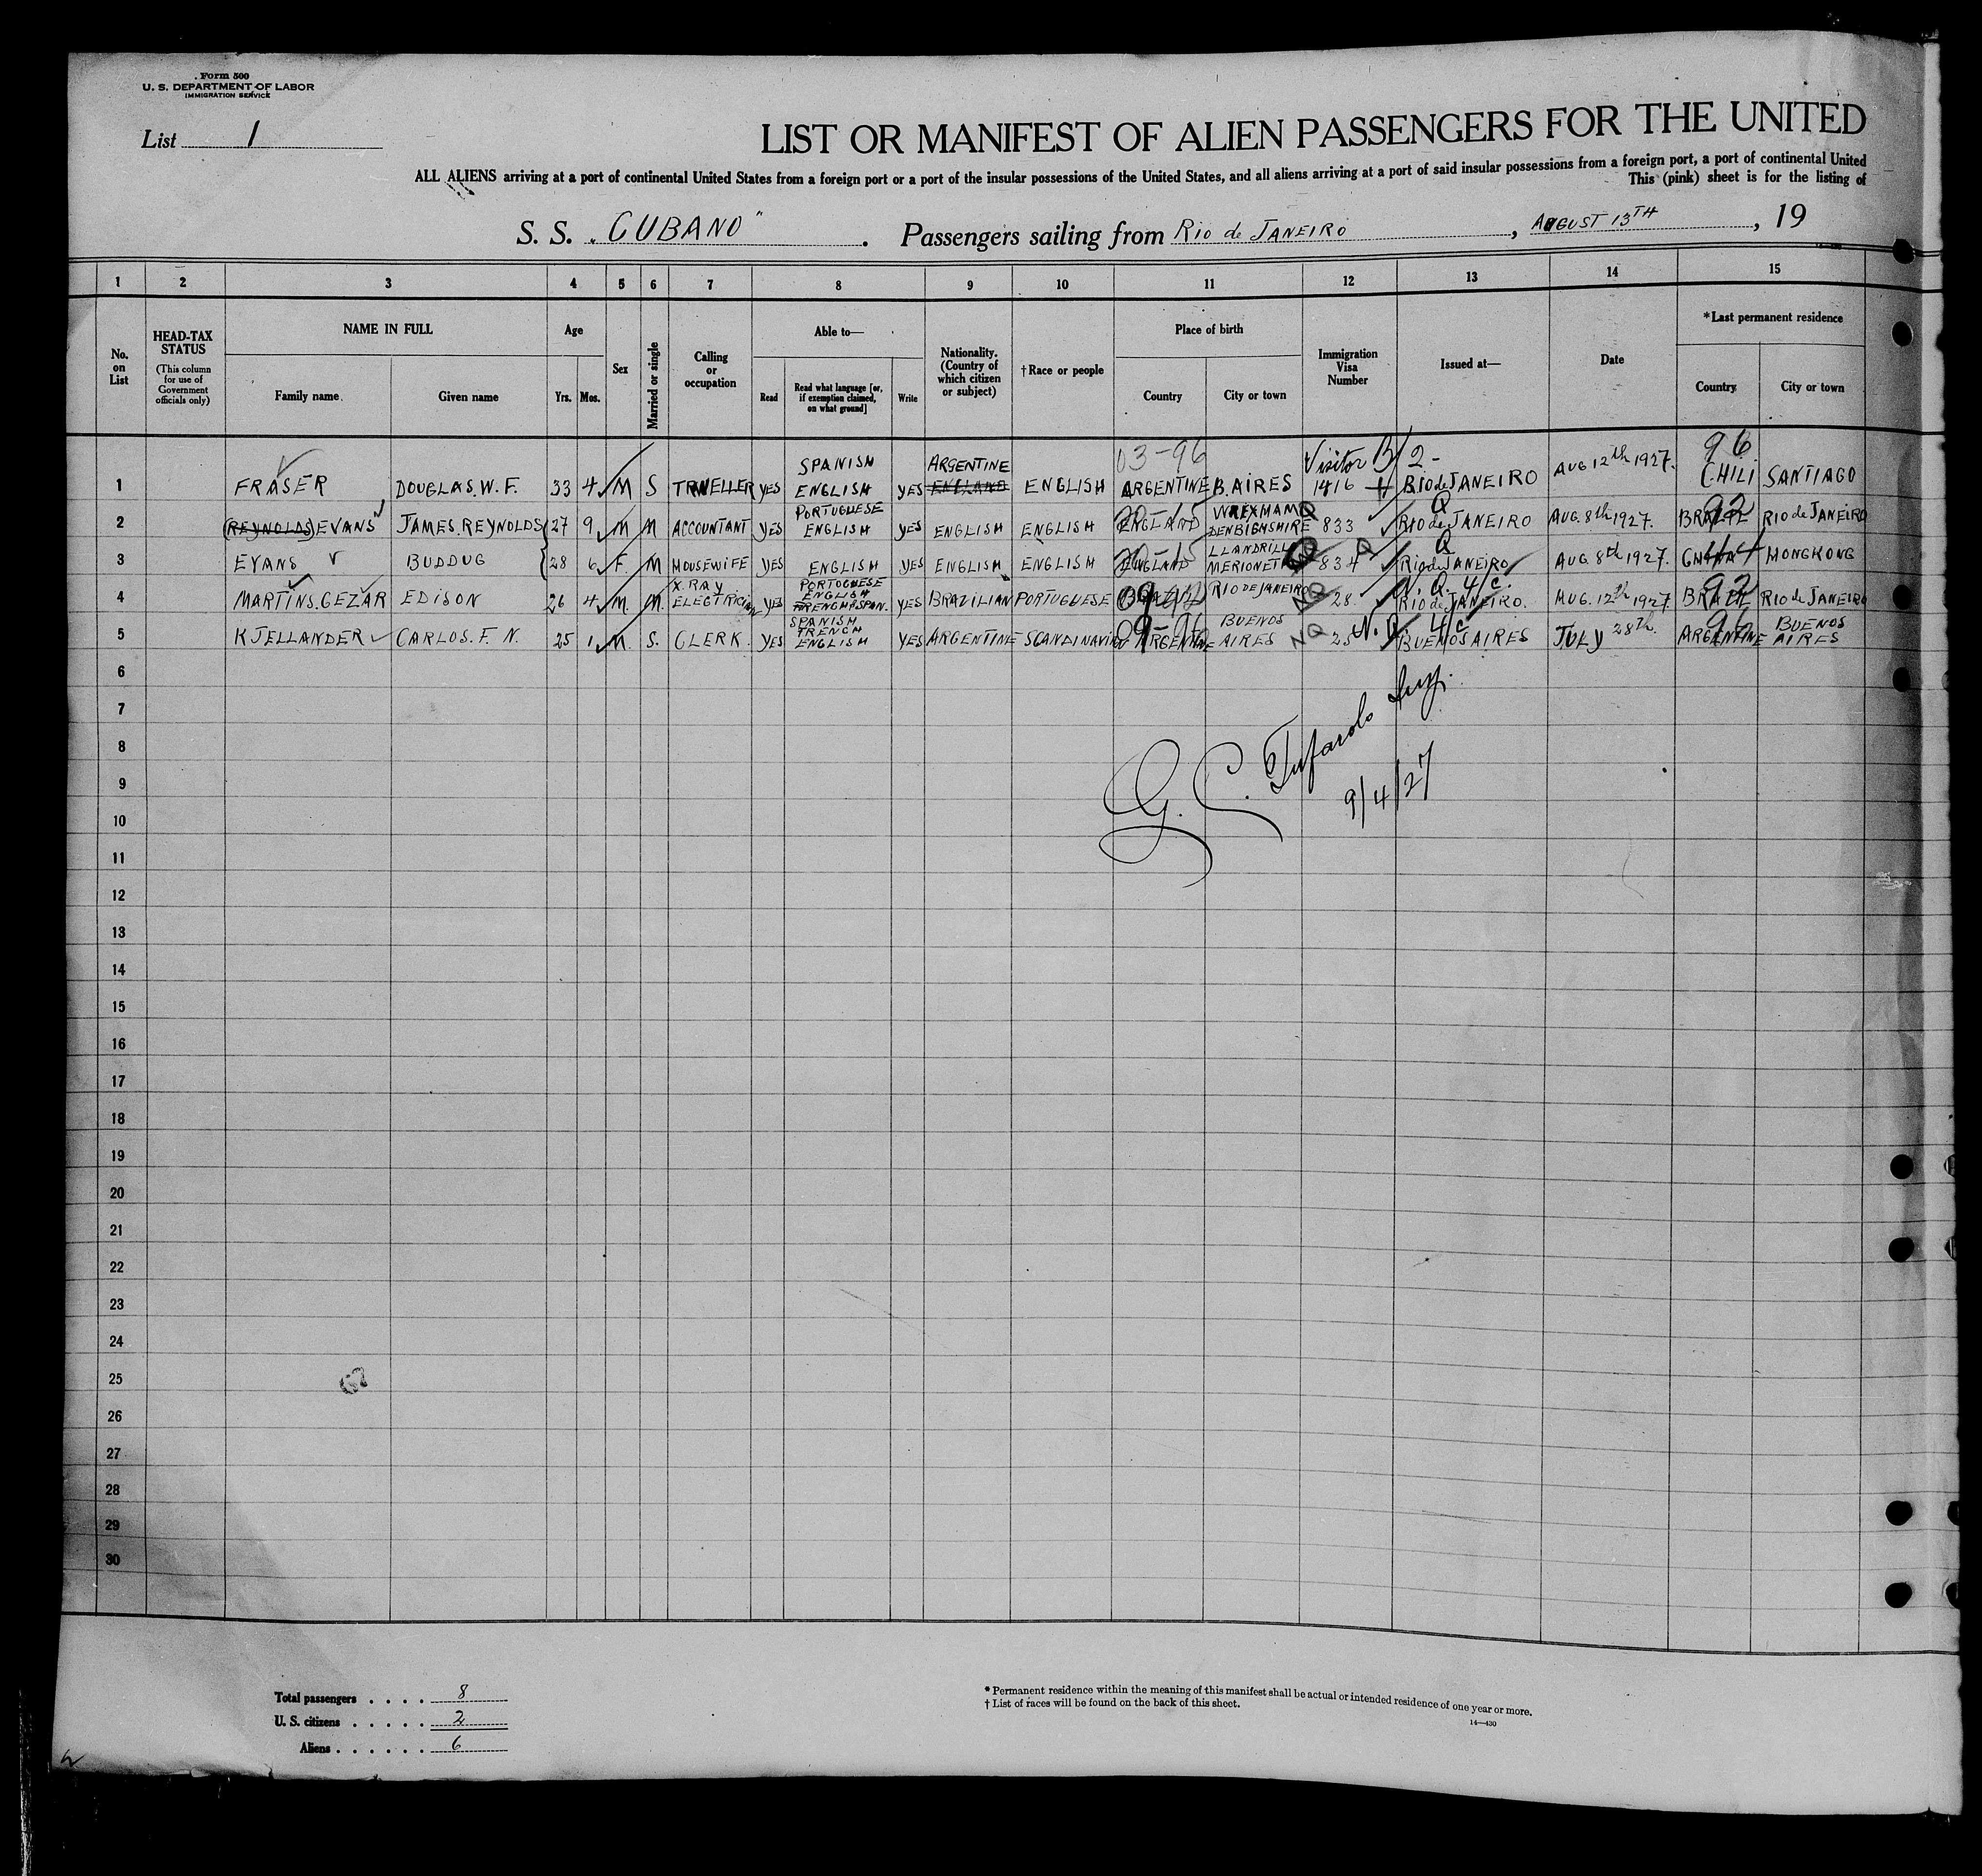 Form 500
U. S. DEPARTMENT OF LABOR
IMMIGRATION SERVICE
List 1
LIST OR MANIFEST OF ALIEN PASSENGERS FOR THE UNITED
ALL ALIENS arriving at a port of continental United States from a foreign port or a port of the insular possessions of the United States, and all aliens arriving at a port of said insular possessions from a foreign port, a port of continental United
This (pink) sheet is for the listing of
S. S. "CUBANO". Passengers sailing from RIO de JANEIRO, AUGUST 13TH, 19
1 2 3 4 5 6 7 8 9 10 11 12 13 14 15
No. on List
HEAD-TAX STATUS
(This column for use of Government officials only)
NAME IN FULL
Family name
Given name
Age
Yrs. Mos.
Sex
Married or single
Calling or occupation
Able to—
Read
Read what language [or, if exemption claimed, on what ground]
Write
Nationality. (Country of which citizen or subject)
†Race or people
Place of birth
Country
City or town
Immigration Visa Number
Issued at—
Date
*Last permanent residence
Country
City or town
1 FRASER DOUGLAS. W. F. 33 4 M S TRAVELLER YES SPANISH ENGLISH YES ARGENTINE ENGLAND ENGLISH 03-96 ARGENTINE B. AIRES Visitor B/2- 1416 RIO de JANEIRO AUG 12th 1927. 96 CHILI SANTIAGO
2 (REYNOLDS) EVANS JAMES. REYNOLDS 27 9 M M ACCOUNTANT YES PORTUGUESE ENGLISH YES ENGLISH ENGLISH ENGLAND WREXHAM DENBIGHSHIRE Q 833 Q RIO de JANEIRO AUG. 8th 1927. BRAZIL 92 RIO de JANEIRO
3 EVANS BUDDUG 28 6 F. M HOUSEWIFE YES ENGLISH YES ENGLISH ENGLISH ENGLAND MERIONET Q 834 Q RIO de JANEIRO AUG 8th 1927. CHINA HONGKONG
4 MARTINS. CEZAR EDISON 26 4 M. M. X. RAY ELECTRICIAN YES PORTOGUESE ENGLISH FRENCH & SPAN. YES BRAZILIAN PORTUGUESE BRAZIL RIO DE JANEIRO NQ 28 N. Q. 4/c. RIO de JANEIRO. AUG. 12th 1927. BRAZIL 92 RIO de JANEIRO
5 KJELLANDER CARLOS. F. N. 25 1 M. S. CLERK. YES SPANISH FRENCH ENGLISH YES ARGENTINE SCANDINAVIAN 09-96 ARGENTINE BUENOS AIRES NQ 25 N. Q. 4/c BUENOS AIRES JULY 28th. ARGENTINE 96 BUENOS AIRES
6
7
8
9
10
11
12
13
14
15
16
17
18
19
20
21
22
23
24
25
26
27
28
29
30
G. C.
9/4/27
Total passengers . . . . 8
U. S. citizens . . . . . 2
Aliens . . . . . . 6
* Permanent residence within the meaning of this manifest shall be actual or intended residence of one year or more.
† List of races will be found on the back of this sheet.
14—430